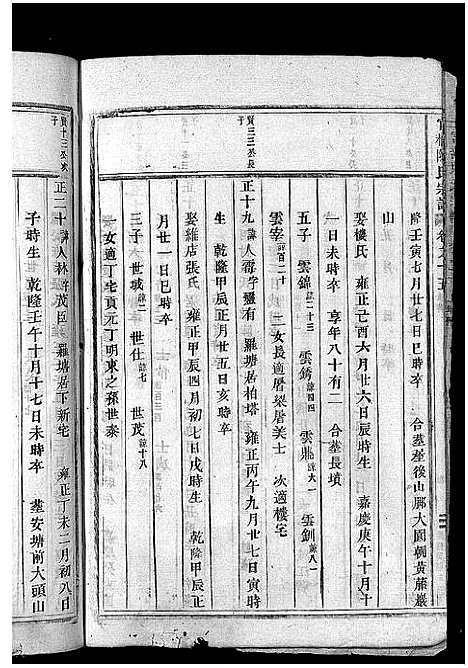 隆壬寅七月廿七日巳時卒 合墓葬後山腳大園朝黃藤巖
山
娶樓氏 雍正己酉六月廿六日辰時生 嘉慶庚午十月十
一日未時卒 享年八十有二 合墓長墳
五子 雲錦諒二十三 雲錡諒四四 雲鼎諒六一 雲釧諒八一
雲宰諒百二十 二女長適厝梁居美士 次適樓宅
賢三三公長子
正十九諱人霽字靈有 羅塘居柏塔 雍正丙午九月廿七日寅時
生 乾隆甲辰正月廿五日亥時卒
娶雅店張氏 雍正甲辰四月初七日戌時生 乾隆甲辰正
月廿一日巳時卒
三子 世城諒二 世仕諒七 世茂諒十八
一女適丁宅貢元丁明東之孫世泰
賢十三公次子
正二十諱人林字茂臣 羅塘居下新宅 雍正丁未二月初八日
子時生 乾隆壬午十月十七日未時卒 墓安塘前大頭山